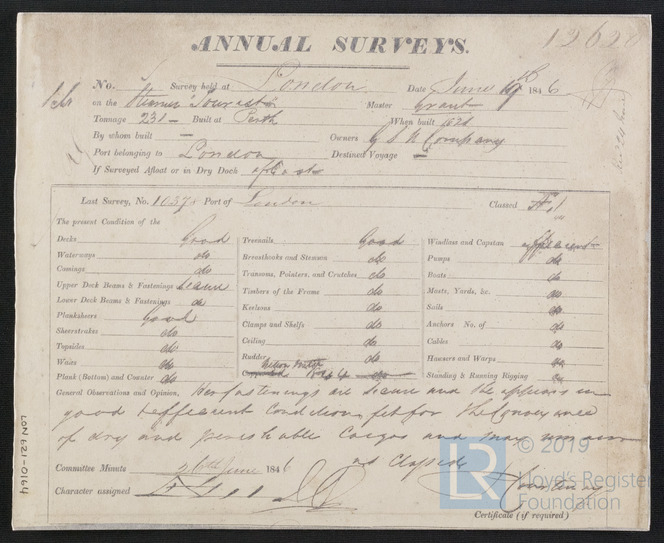 12628
ANNUAL SURVEYS.
No. Survey held at London Date June 1846
on the Steamer "Tourist" Master Grant
Tonnage 231 - Built at Perth When built 1821
By whom built — Owners G S N Company
Port belonging to London Destined Voyage —
If Surveyed Afloat or in Dry Dock Afloat
Last Survey, No. 10373 Port of London Classed
The present Condition of the
Decks Good
Waterways do
Comings do
Upper Deck Beams & Fastenings Secure
Lower Deck Beams & Fastenings do
Planksheers Good
Sheerstrakes do
Topsides do
Wales do
Plank (Bottom) and Counter do
Treenails Good
Breasthooks and Stemson do
Transoms, Pointers, and Crutches do
Timbers of the Frame do
Keelsons do
Clamps and Shelfs do
Ceiling do
Rudder do
Windlass and Capstan efficient
Pumps do
Boats do
Masts, Yards, &c. do
Sails do
Anchors No. of do
Cables do
Hawsers and Warps do
Standing & Running Rigging do
General Observations and Opinion, Her fastenings are secure and she appears in
good & efficient Condition, fit for the Conveyance
of dry and perishable Cargos and may
as Classed
Committee Minute 26th June 1846
Character assigned
Certificate (if required)
LON 621-0164
© 2019
LR
Lloyd's Register
Foundation